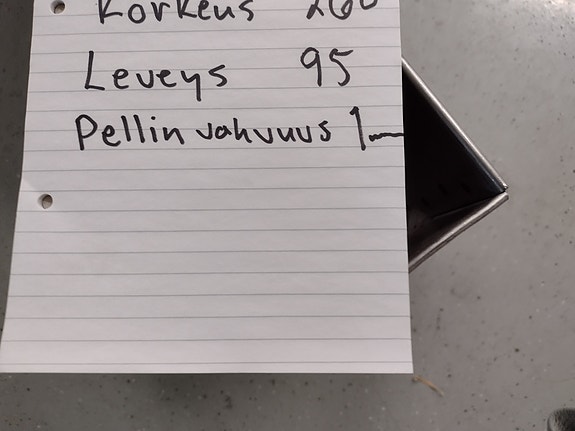 Korkeus 260
Leveys 95
Pellin vahvuus 1mm